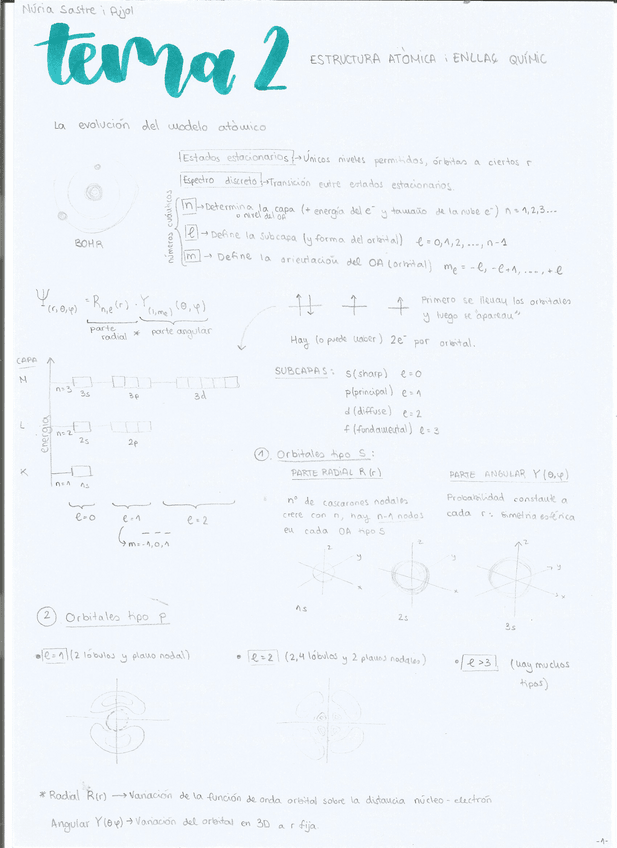 Núria Sastre i Pujol
tema 2
ESTRUCTURA ATÒMICA i ENLLAÇ QUÍMIC
La evolución del modelo atòmico
BOHR
Estados estacionarios → Únicos niveles permitidos, órbitas a ciertos r
Espectro discreto → Transición entre estados estacionarios
números cuánticos
n → Determina la capa (+ energía del e⁻ y tamaño de la nube e⁻) n = 1,2,3...
o nivel del OA
ℓ → Define la subcapa (y forma del orbital) ℓ = 0,1,2,..., n-1
m → Define la orientación del OA (orbital) mℓ = -ℓ, -ℓ+1, ...., +ℓ
Ψ(r,θ,φ) = Rn,ℓ(r) · Y(l,mℓ)(θ,φ)
parte radial * parte angular
Primero se llenan los orbitales
y luego se "aparean"
Hay (o puede haber) 2e⁻ por orbital.
CAPA
energía
M n=3 3s 3p 3d
L n=2 2s 2p
K n=1 1s
ℓ=0 ℓ=1 ℓ=2
m=-1,0,1
SUBCAPAS: s (sharp) ℓ=0
p (principal) ℓ=1
d (diffuse) ℓ=2
f (fundamental) ℓ=3
1 Orbitales tipo S:
PARTE RADIAL R(r)
nº de cascarones nodales
crece con n, hay n-1 nodos
en cada OA tipo S
PARTE ANGULAR Y(θ,φ)
Probabilidad constante a
cada r: simetría esférica
z y x
z y x
z y x
1s
2s
3s
2 Orbitales tipo p
• ℓ=1 (2 lóbulos y plano nodal)
• ℓ=2 (2,4 lóbulos y 2 planos nodales)
• ℓ>3 (hay muchos
tipos)
* Radial R(r) → Variación de la función de onda orbital sobre la distancia núcleo-electrón
Angular Y(θφ) → Variación del orbital en 3D a r fija.
-1-